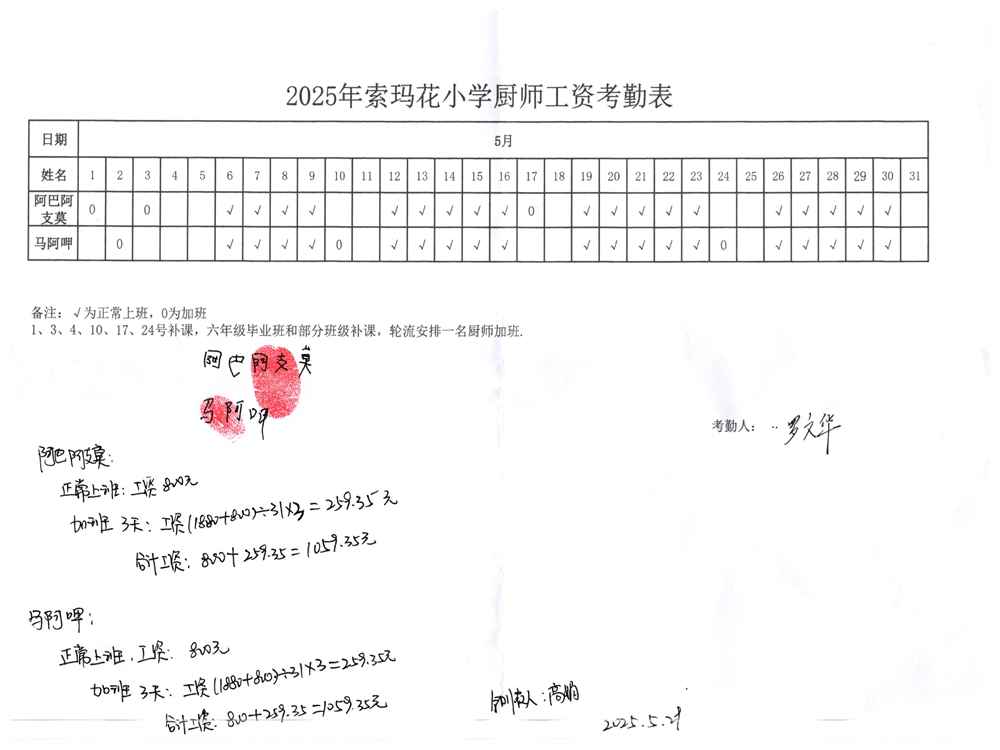 2025年索玛花小学厨师工资考勤表
日期 5月
姓名 1 2 3 4 5 6 7 8 9 10 11 12 13 14 15 16 17 18 19 20 21 22 23 24 25 26 27 28 29 30 31
阿巴阿支莫 0 0 √ √ √ √ √ √ √ √ √ 0 √ √ √ √ √ √ √ √ √ √
马阿呷 0 √ √ √ √ 0 √ √ √ √ √ √ √ √ √ √ 0 √ √ √ √ √
备注：√为正常上班，0为加班
1、3、4、10、17、24号补课，六年级毕业班和部分班级补课，轮流安排一名厨师加班.
阿巴阿支莫
马阿呷
考勤人： 罗文华
阿巴阿支莫：
正常上班：工资800元
加班3天：工资(1880+800)÷31×3=259.35元
合计工资：800+259.35=1059.35元
马阿呷：
正常上班，工资：800元
加班3天：工资(1880+800)÷31×3=259.35元
合计工资：800+259.35=1059.35元
制表人：高娟
2025.5.29